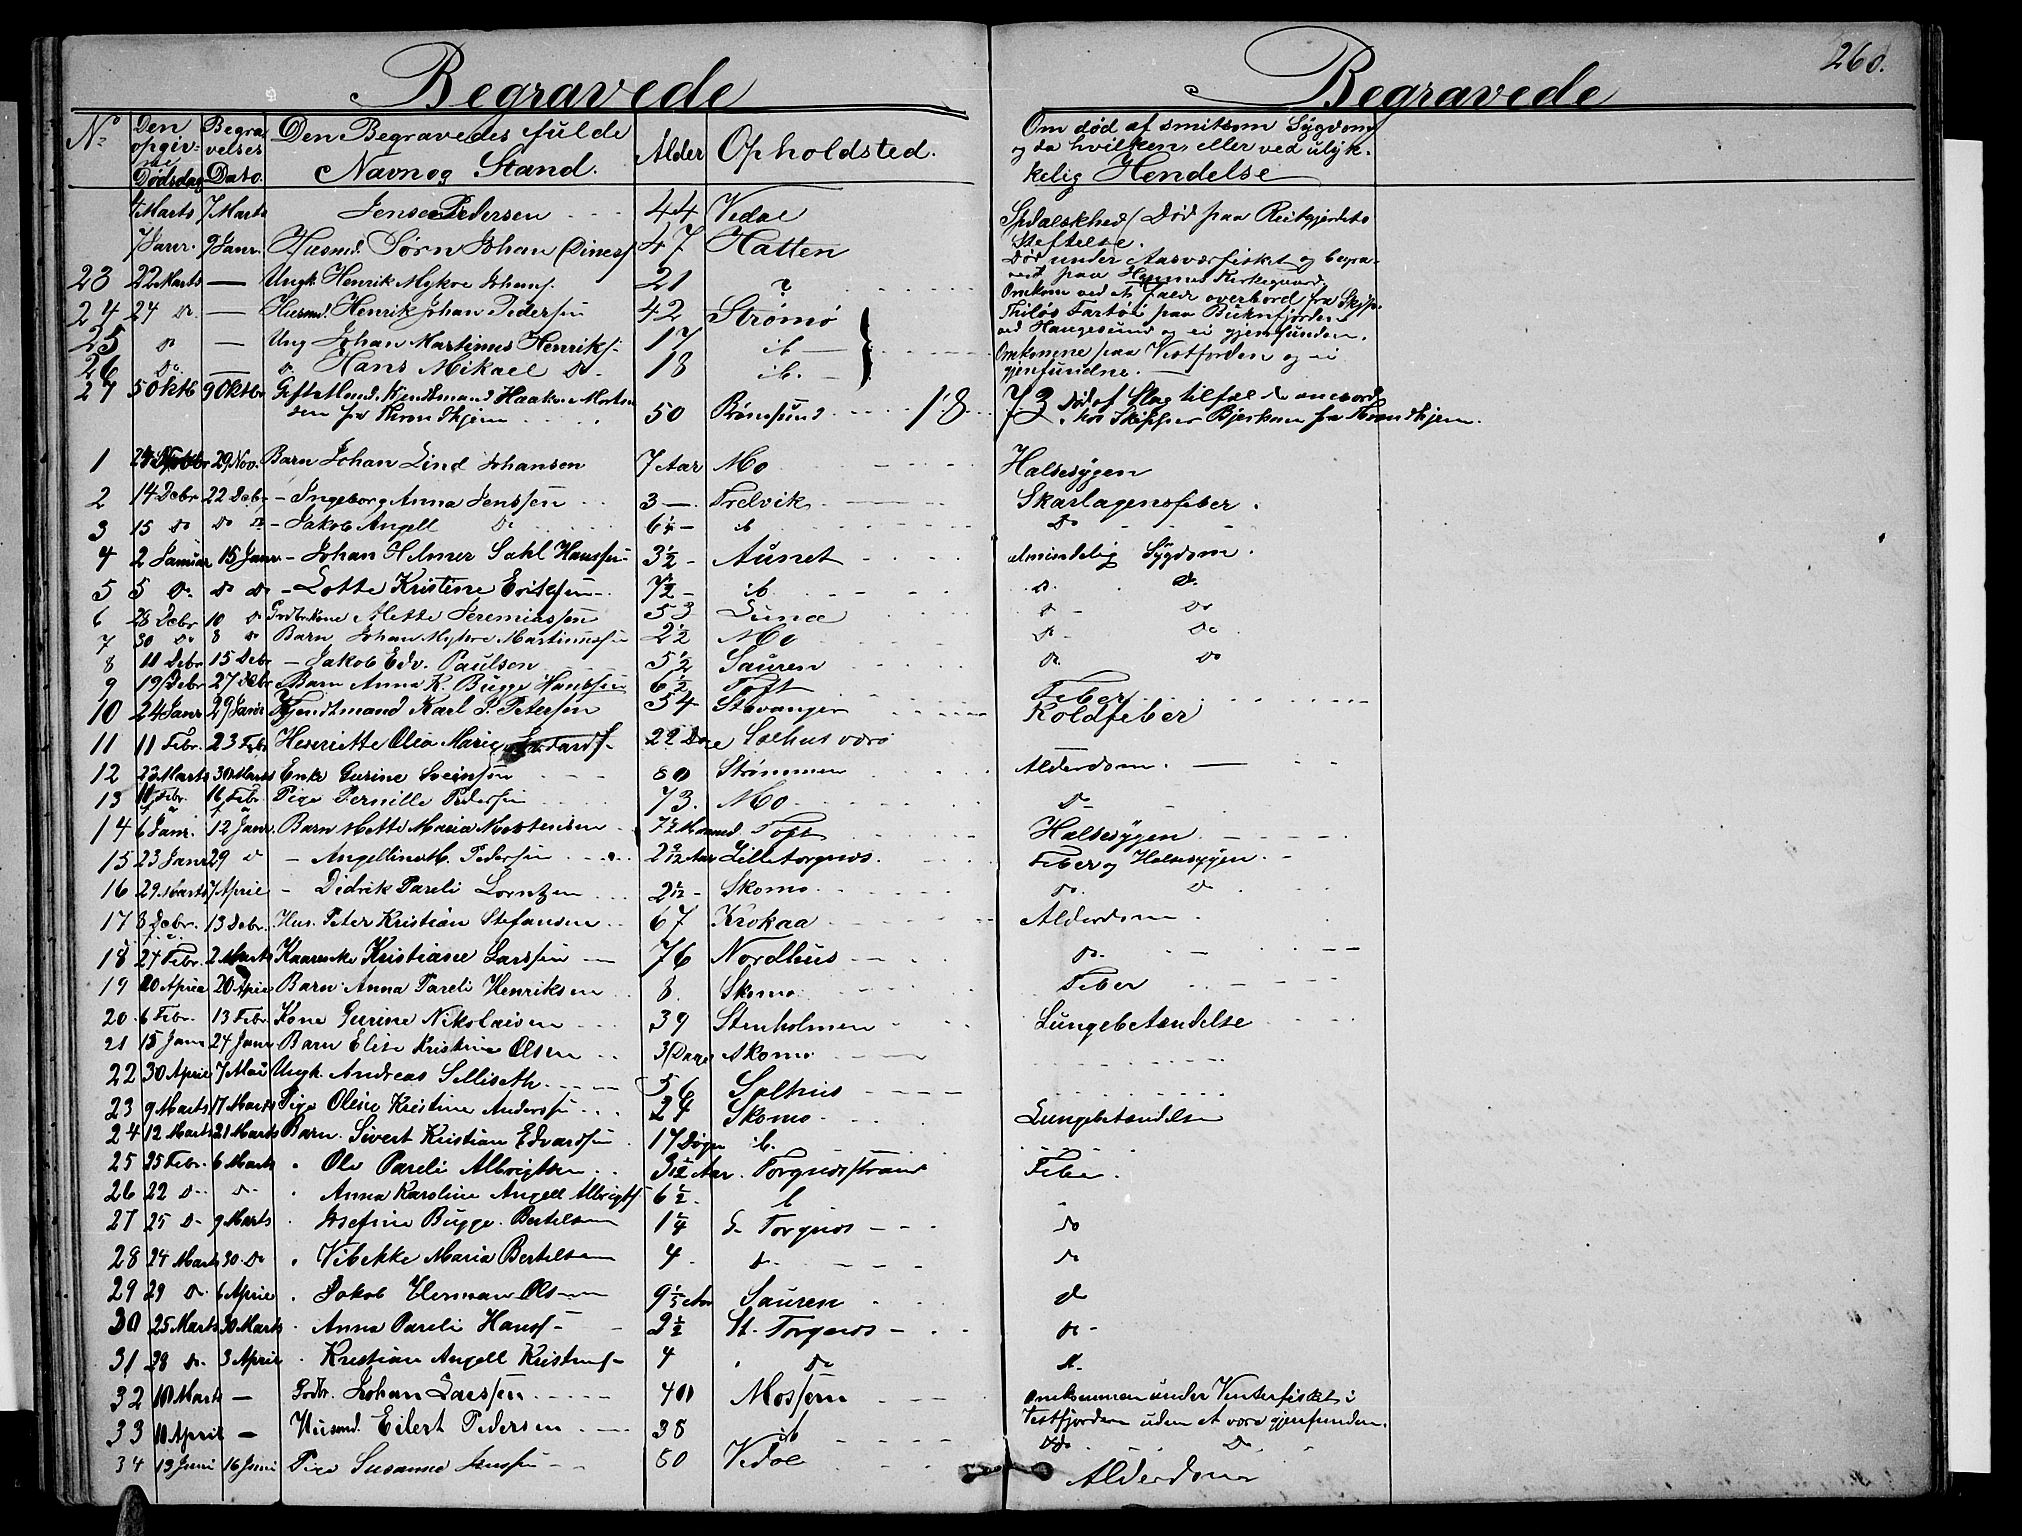 260.
Begravede
Begravede
No Den opgivne Dødsdag Begravelses Dato. Den Begravedes fulde Navn og Stand. Alder Opholdsted. Om død af smitsom Sygdom og da hvilken, eller ved ulykkelig Hendelse
4 Marts 7 Marts Jens Pedersen 44 Vedal Spedalskhed (Død paa Reitgjerdets Steftelse.
7 Janr. 9 Janr. Husmd. Sørn Johan (Dines) 47 Hatten
23 22 Marts — Ungk. Henrik Mykre Johans. 21 ? Død under Aasværfisket og begravet paa Kirkegaard.
24 24 Do — Husmd. Henrik Johan Pedersen 42 Strømö Omkom ved at falde overbord fra Skip. Fartöi paa Buknfjorden ved Haugesund og ei gjenfunden.
25 Do — Ung Johan Martinus Henriks. 17 ib — Omkomne paa Vestfjorden og ei gjenfundne. —
26 Do. — Do. Hans Mikael Do. 18 ib. —
27 5 Oktb 9 Oktbr Gift Kjendtmand Haakon Morten fra Throndhjem 50 Rønsund 18 73 død af Slagtilfælde ombord hos Skipper Bjerkan fra Throndhjem.
1 29 Nov. Barn Johan Lind Johansen 7 Aar Mo Halssygen
2 14 Debr 22 Debr — Ingeborg Anna Jenssen 3 — Trelvik Skarlagensfeber.
3 15 Do Do Do — Jakob Angell Do 6 — ib Do
4 2 Januar 15 Janr — Johan Helmer Hanssen 3½ — Aunet Almindelig Sygdom.
5 5 Do. Do Do — Lotte Kristine Eriksen 7½ — ib. Do. Do.
6 28 Debr 10 Do Grdbr.kone Mette Jeremiassen 53 Lund Do — Do
7 30 Do 8 Do Barn Johan Mykre Martinussen 2½ Mo Do — Do
8 11 Debr 15 Debr — Jakob Edv. Paulsen 5½ Sauren Do. Do
9 19 Debr 27 Debr Barn Anna K. Bugge Hanssen 6½ Toft Feber
10 24 Janr 29 Janr Kjendtmand Karl P. Petersen 54 Stavanger Koldfeber
11 11 Febr. 23 Febr Henriette Olea Marie 22 Solhusværö
12 23 Marts 30 Marts Enke Gurine Sveinsen 80 Strømmen Alderdom. —
13 10 Febr 16 Febr Pige Pernille Pedersen 73. Mo Do
14 6 Janr. 12 Janr. Barn Mette Maria Mortensen 7½ Maaned. Toft Halssygen
15 23 Janr 29 Do — Angelline M. Pedersen 2 9/12 Aar Lilletorgnes. Feber og Halssygen. —
16 29. Marts 7 April — Didrik Pareli Lorntzen 2 1/12 — Skomo Do. Do
17 8 Debr. 13 Debr. Hus. Peter Kristian Stefansen 67 Krokaa Alderdom
18 27 Febr. 2 Marts Kristiane Larssen 76 Nordhus Do.
19 20 April 20 April Barn Anna Pareli Henriksen 8. Skomo Feber
20. 6 Febr. 13 Febr. Kone Gurine Nikolaisen 39 Stenholmen Lungebetændelse
21 15 Janr 24 Janr Barn Elise Kristine Olsen 3 Dage Skomo
22 30 April 7 Mai Ungk. Andreas Selliseth. 56 Solhus
23 9 Marts 17 Marts Pige Oline Kristine Anderss 24 Skomo Lungebetændelse
24 12 Marts 21 Marts Barn. Sivert Kristian Edvardsen 17 Døgn ib.
25 25 Febr. 6 Marts Ole Pareli Albrigtsen Aar. Torgnesstrand Feber.
26 22 Do Do Anna Karoline Angell Albrigts 6½ ib
27 25 Do 9 Marts Josefine Bugge Bertelsen 1¼ L. Torgnes Do
28 24 Marts 30 Do Vibekke Maria Bertelsen 4 Do. Do
29 29 Do. 6 April Jakob Herman Olsen Sauren Do
30 25 Marts 30 Marts Anna Pareli Hans 2½ St. Torgnes Do
31 28 Do. 3 April Kristian Angell Kristens 4 Do Do
32 10 Marts — Grdbr. Johan Larssen 40 Mossem Omkommen under Vinterfisket i Vestfjorden uden at være gjenfunden.
33 10 April — Husmd. Eilert Pedersen 38 ib Do. Do
34 13 Juni 16 Juni Pige Susanna Jenssen 80 Vedal Alderdom